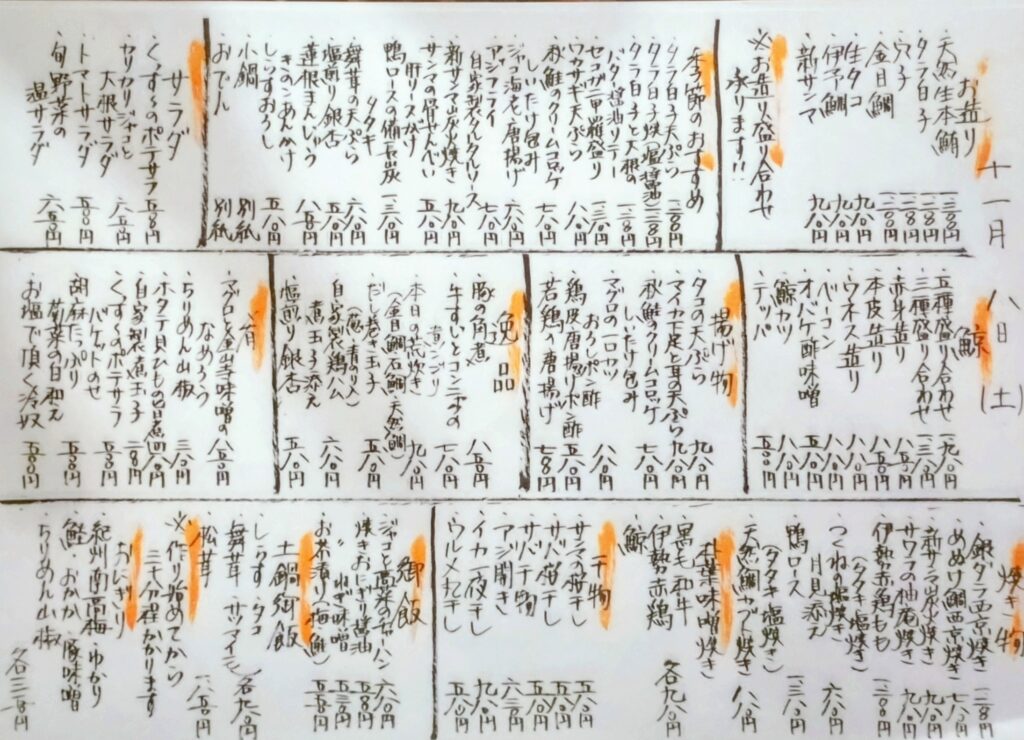 十一月八日(土)
お造り
・天然生本鮪 一三八〇円
・タラ白子 一二八〇円
・穴子 一二八〇円
・金目鯛 一二八〇円
・生タコ 九八〇円
・伊予鯛 九八〇円
・新サンマ 九八〇円
※お造り盛り合わせ
承ります!!
季節のおすすめ
・タラ白子天ぷら
・タラ白子焼(塩・醤油)
・タラ白子と大根の
バター醤油ソテー
・セコガニ甲羅盛り
・ワカサギ天ぷら 八八〇円
・秋鮭のクリームコロッケ
しいたけ包み 七八〇円
・ジャコ海老唐揚げ 六八〇円
・アジフライ
自家製タルタルソース 七八〇円
・新サンマの炭火焼き 九八〇円
・サンマの骨せんべい 五八〇円
肝ソースかけ
・鴨ロースの備長炭
タタキ
・舞茸の天ぷら 六八〇円
・塩煎り銀杏 五八〇円
・蓮根まんじゅう
きのこあんかけ 八五〇円
・しらすおろし 五八〇円
・小鍋 別紙
・おでん 別紙
サラダ
・くずしのポテサラ 五八〇円
・カリカリジャコと
大根サラダ 六五〇円
・トマトサラダ 五八〇円
・旬野菜の
温サラダ 六五〇円
鯨
・五種盛り合わせ
・三種盛り合わせ
・赤身造り
・本皮造り
・ウネス造り
・ベーコン
・オバケ酢味噌
・鯨カツ
・テッパ
揚げ物
・タコの天ぷら 九八〇円
・マイカ下足と茸の天ぷら 九八〇円
・秋鮭のクリームコロッケ
しいたけ包み 七八〇円
・マグロの一口カツ
おろしポン酢 八八〇円
・鶏皮唐揚げポン酢 五八〇円
・若鶏の唐揚げ 七八〇円
逸品
・豚の角煮 八五〇円
・牛すじとコンニャクの
煮こごり 七八〇円
・本日の荒炊き 九八〇円
(金目鯛・石鯛・天然鯛)
・だし巻き玉子
(葱・青のり入)
・自家製鶏ハム
煮玉子添え 六八〇円
・塩煎り銀杏 五八〇円
肴
・マグロと金山寺味噌の
なめろう 八五〇円
・ちりめん山椒 三八〇円
・ホタテ貝ひもの旨煮
・自家製煮玉子
・くずしのポテサラ
バゲットのせ 五八〇円
・胡麻たっぷり
菊菜の白和え 五八〇円
・お塩で頂く冷奴 五八〇円
焼き物
・銀ダラ西京焼き
・あぬけ鯛西京焼き
・新サンマ炭火焼き 九八〇円
・サワラの柚庵焼き 九八〇円
・伊勢赤鶏もも
(タタキ・塩焼き)
・つくねの塩焼き
月見添え 六八〇円
・鴨ロース
(タタキ・塩焼き)
・天然鯛カブト塩焼き 八八〇円
朴葉味噌焼き
・黒毛和牛
・伊勢赤鶏
・鯨 各九八〇円
干物
・サンマの桜干し 五八〇円
・サバ桜干し 五八〇円
・サバ干物 五八〇円
・アジ開き
・イカ一夜干し 九八〇円
・ウルメ丸干し 五八〇円
御飯
・ジャコと高菜のチャーハン 六八〇円
・焼きおにぎり醤油
〃 ねぎ味噌
・お茶漬け(梅・鮭)
土鍋御飯
・しらす・タコ
・舞茸・サツマイモ 各九八〇円
・松茸 一八〇〇円
※作り始めてから
三十分程かかります
おにぎり
・紀州南高梅・ゆかり
・鮭・おかか・豚味噌
・ちりめん山椒 各二五〇円